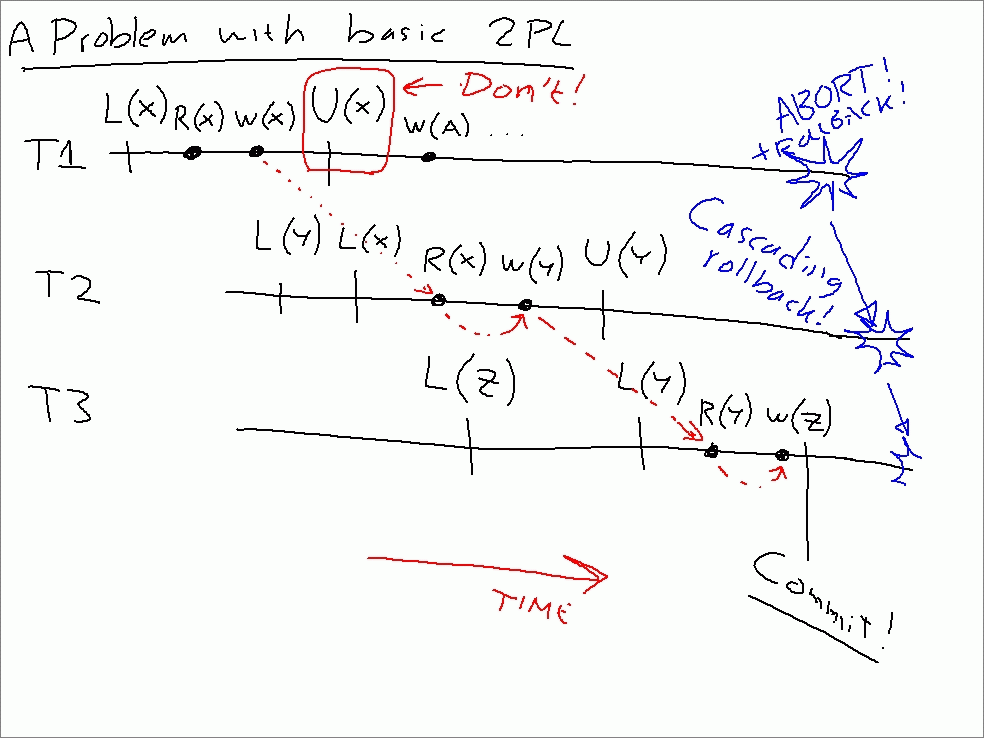 A Problem with basic 2PL
L(x) R(x) W(x) U(x) ← Don't!
W(A) ...
T1
ABORT!
+Rollback!
Cascading
rollback!
L(Y) L(x) R(x) W(Y) U(Y)
T2
L(Z) L(Y) R(Y) W(Z)
T3
TIME
Commit!